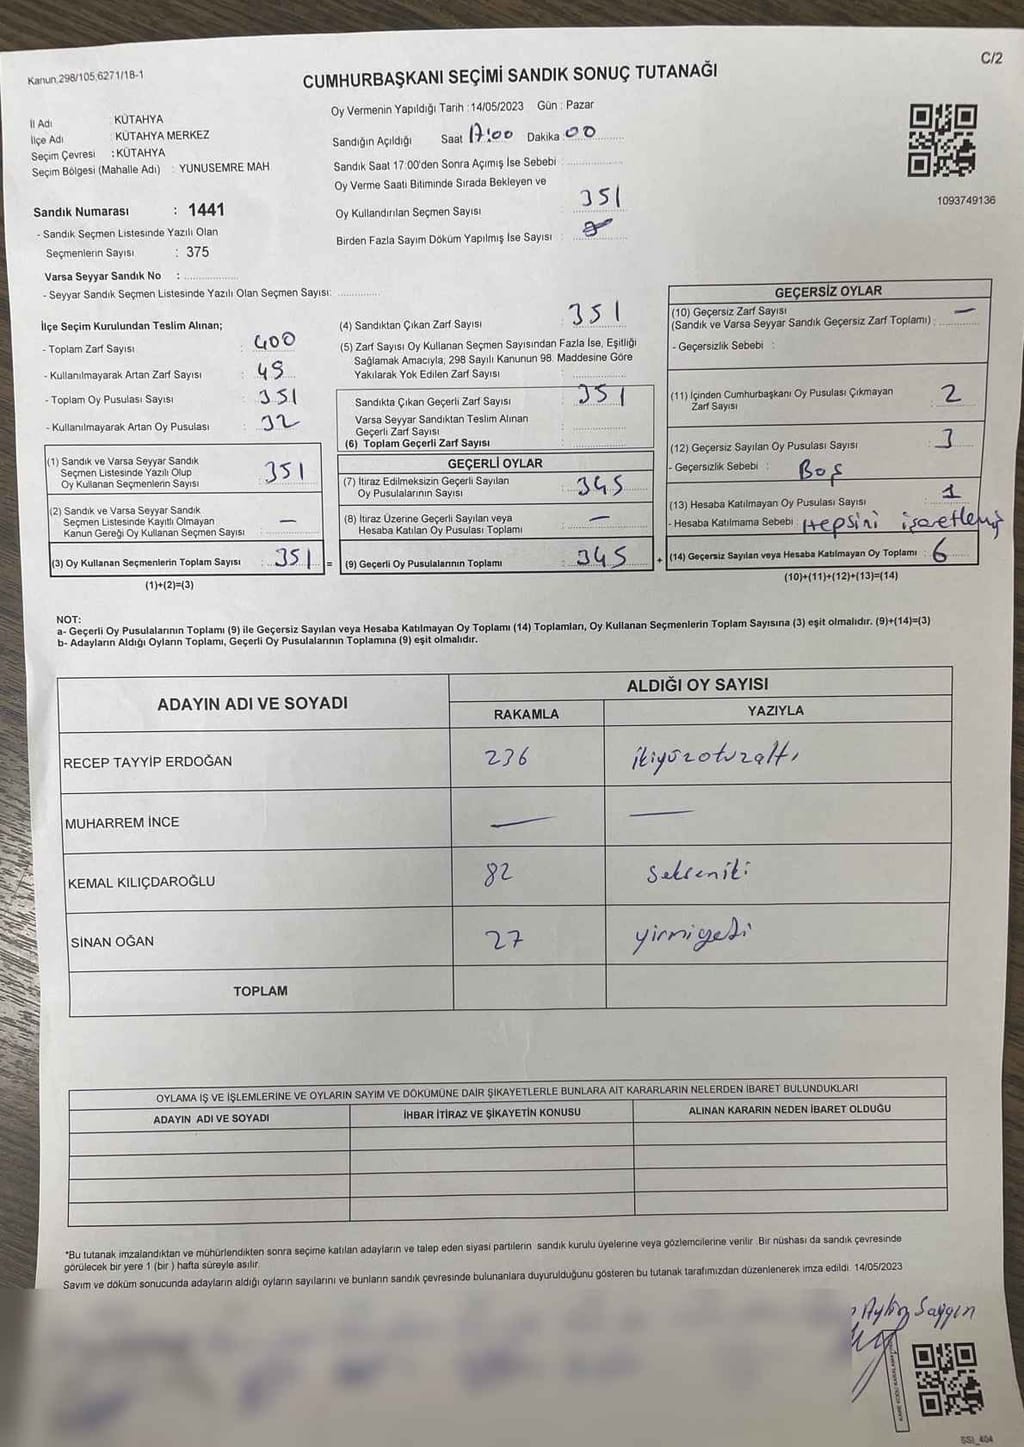 Kanun,298/105,6271/18-1
C/2
CUMHURBAŞKANI SEÇİMİ SANDIK SONUÇ TUTANAĞI
İl Adı : KÜTAHYA
İlçe Adı : KÜTAHYA MERKEZ
Seçim Çevresi : KÜTAHYA
Seçim Bölgesi (Mahalle Adı) : YUNUSEMRE MAH
Sandık Numarası : 1441
- Sandık Seçmen Listesinde Yazılı Olan
Seçmenlerin Sayısı : 375
Varsa Seyyar Sandık No :
- Seyyar Sandık Seçmen Listesinde Yazılı Olan Seçmen Sayısı:
Oy Vermenin Yapıldığı Tarih :14/05/2023 Gün : Pazar
Sandığın Açıldığı Saat 17:00 Dakika 00
Sandık Saat 17:00'den Sonra Açımış İse Sebebi :
Oy Verme Saati Bitiminde Sırada Bekleyen ve
Oy Kullandırılan Seçmen Sayısı : 351
Birden Fazla Sayım Döküm Yapılmış İse Sayısı :
1093749136
İlçe Seçim Kurulundan Teslim Alınan;
- Toplam Zarf Sayısı : 400
- Kullanılmayarak Artan Zarf Sayısı : 49
- Toplam Oy Pusulası Sayısı : 351
- Kullanılmayarak Artan Oy Pusulası : 32
(1) Sandık ve Varsa Seyyar Sandık
Seçmen Listesinde Yazılı Olup
Oy Kullanan Seçmenlerin Sayısı : 351
(2) Sandık ve Varsa Seyyar Sandık
Seçmen Listesinde Kayıtlı Olmayan
Kanun Gereği Oy Kullanan Seçmen Sayısı : —
(3) Oy Kullanan Seçmenlerin Toplam Sayısı : 351 =
(1)+(2)=(3)
(4) Sandıktan Çıkan Zarf Sayısı : 351
(5) Zarf Sayısı Oy Kullanan Seçmen Sayısından Fazla İse, Eşitliği
Sağlamak Amacıyla, 298 Sayılı Kanunun 98. Maddesine Göre
Yakılarak Yok Edilen Zarf Sayısı :
Sandıkta Çıkan Geçerli Zarf Sayısı : 351
Varsa Seyyar Sandıktan Teslim Alınan
Geçerli Zarf Sayısı :
(6) Toplam Geçerli Zarf Sayısı :
GEÇERLİ OYLAR
(7) İtiraz Edilmeksizin Geçerli Sayılan
Oy Pusulalarının Sayısı : 345
(8) İtiraz Üzerine Geçerli Sayılan veya
Hesaba Katılan Oy Pusulası Toplamı : —
(9) Geçerli Oy Pusulalarının Toplamı : 345 +
GEÇERSİZ OYLAR
(10) Geçersiz Zarf Sayısı —
(Sandık ve Varsa Seyyar Sandık Geçersiz Zarf Toplamı) :
- Geçersizlik Sebebi :
(11) İçinden Cumhurbaşkanı Oy Pusulası Çıkmayan
Zarf Sayısı : 2
(12) Geçersiz Sayılan Oy Pusulası Sayısı : 3
- Geçersizlik Sebebi : Boş
(13) Hesaba Katılmayan Oy Pusulası Sayısı : 1
- Hesaba Katılmama Sebebi : Hepsini işaretlemiş
(14) Geçersiz Sayılan veya Hesaba Katılmayan Oy Toplamı : 6
(10)+(11)+(12)+(13)=(14)
NOT:
a- Geçerli Oy Pusulalarının Toplamı (9) ile Geçersiz Sayılan veya Hesaba Katılmayan Oy Toplamı (14) Toplamları, Oy Kullanan Seçmenlerin Toplam Sayısına (3) eşit olmalıdır. (9)+(14)=(3)
b- Adayların Aldığı Oyların Toplamı, Geçerli Oy Pusulalarının Toplamına (9) eşit olmalıdır.
ADAYIN ADI VE SOYADI ALDIĞI OY SAYISI
RAKAMLA YAZIYLA
RECEP TAYYİP ERDOĞAN 236 ikiyüzotuzaltı
MUHARREM İNCE — —
KEMAL KILIÇDAROĞLU 82 Sekseniki
SİNAN OĞAN 27 yirmiyedi
TOPLAM
OYLAMA İŞ VE İŞLEMLERİNE VE OYLARIN SAYIM VE DÖKÜMÜNE DAİR ŞİKAYETLERLE BUNLARA AİT KARARLARIN NELERDEN İBARET BULUNDUKLARI
ADAYIN ADI VE SOYADI İHBAR İTİRAZ VE ŞİKAYETİN KONUSU ALINAN KARARIN NEDEN İBARET OLDUĞU
*Bu tutanak imzalandıktan ve mühürlendikten sonra seçime katılan adayların ve talep eden siyasi partilerin sandık kurulu üyelerine veya gözlemcilerine verilir. Bir nüshası da sandık çevresinde
görülecek bir yere 1 (bir ) hafta süreyle asılır.
Sayım ve döküm sonucunda adayların aldığı oyların sayılarını ve bunların sandık çevresinde bulunanlara duyurulduğunu gösteren bu tutanak tarafımızdan düzenlenerek imza edildi. 14/05/2023
Aylin Saygın